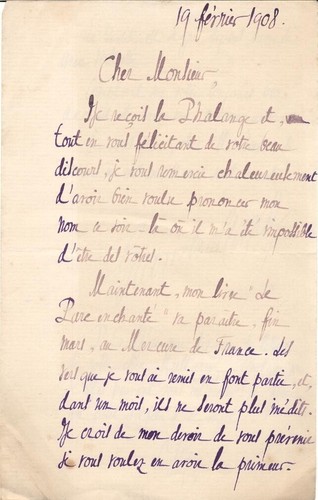 19 février 1908.
Cher Monsieur,
Je reçois la Phalange et,
tout en vous félicitant de votre beau
discours, je vous remercie chaleureusement
d'avoir bien voulu prononcer mon
nom ce soir-là où il m'a été impossible
d'être des vôtres.
Maintenant, mon livre "Le
Parc enchanté" va paraître, fin
mars, au Mercure de France. Les
vers que je vous ai remis en font partie, et,
dans un mois, ils ne seront plus inédits.
Je crois de mon devoir de vous prévenir
si vous voulez en avoir la primeur.